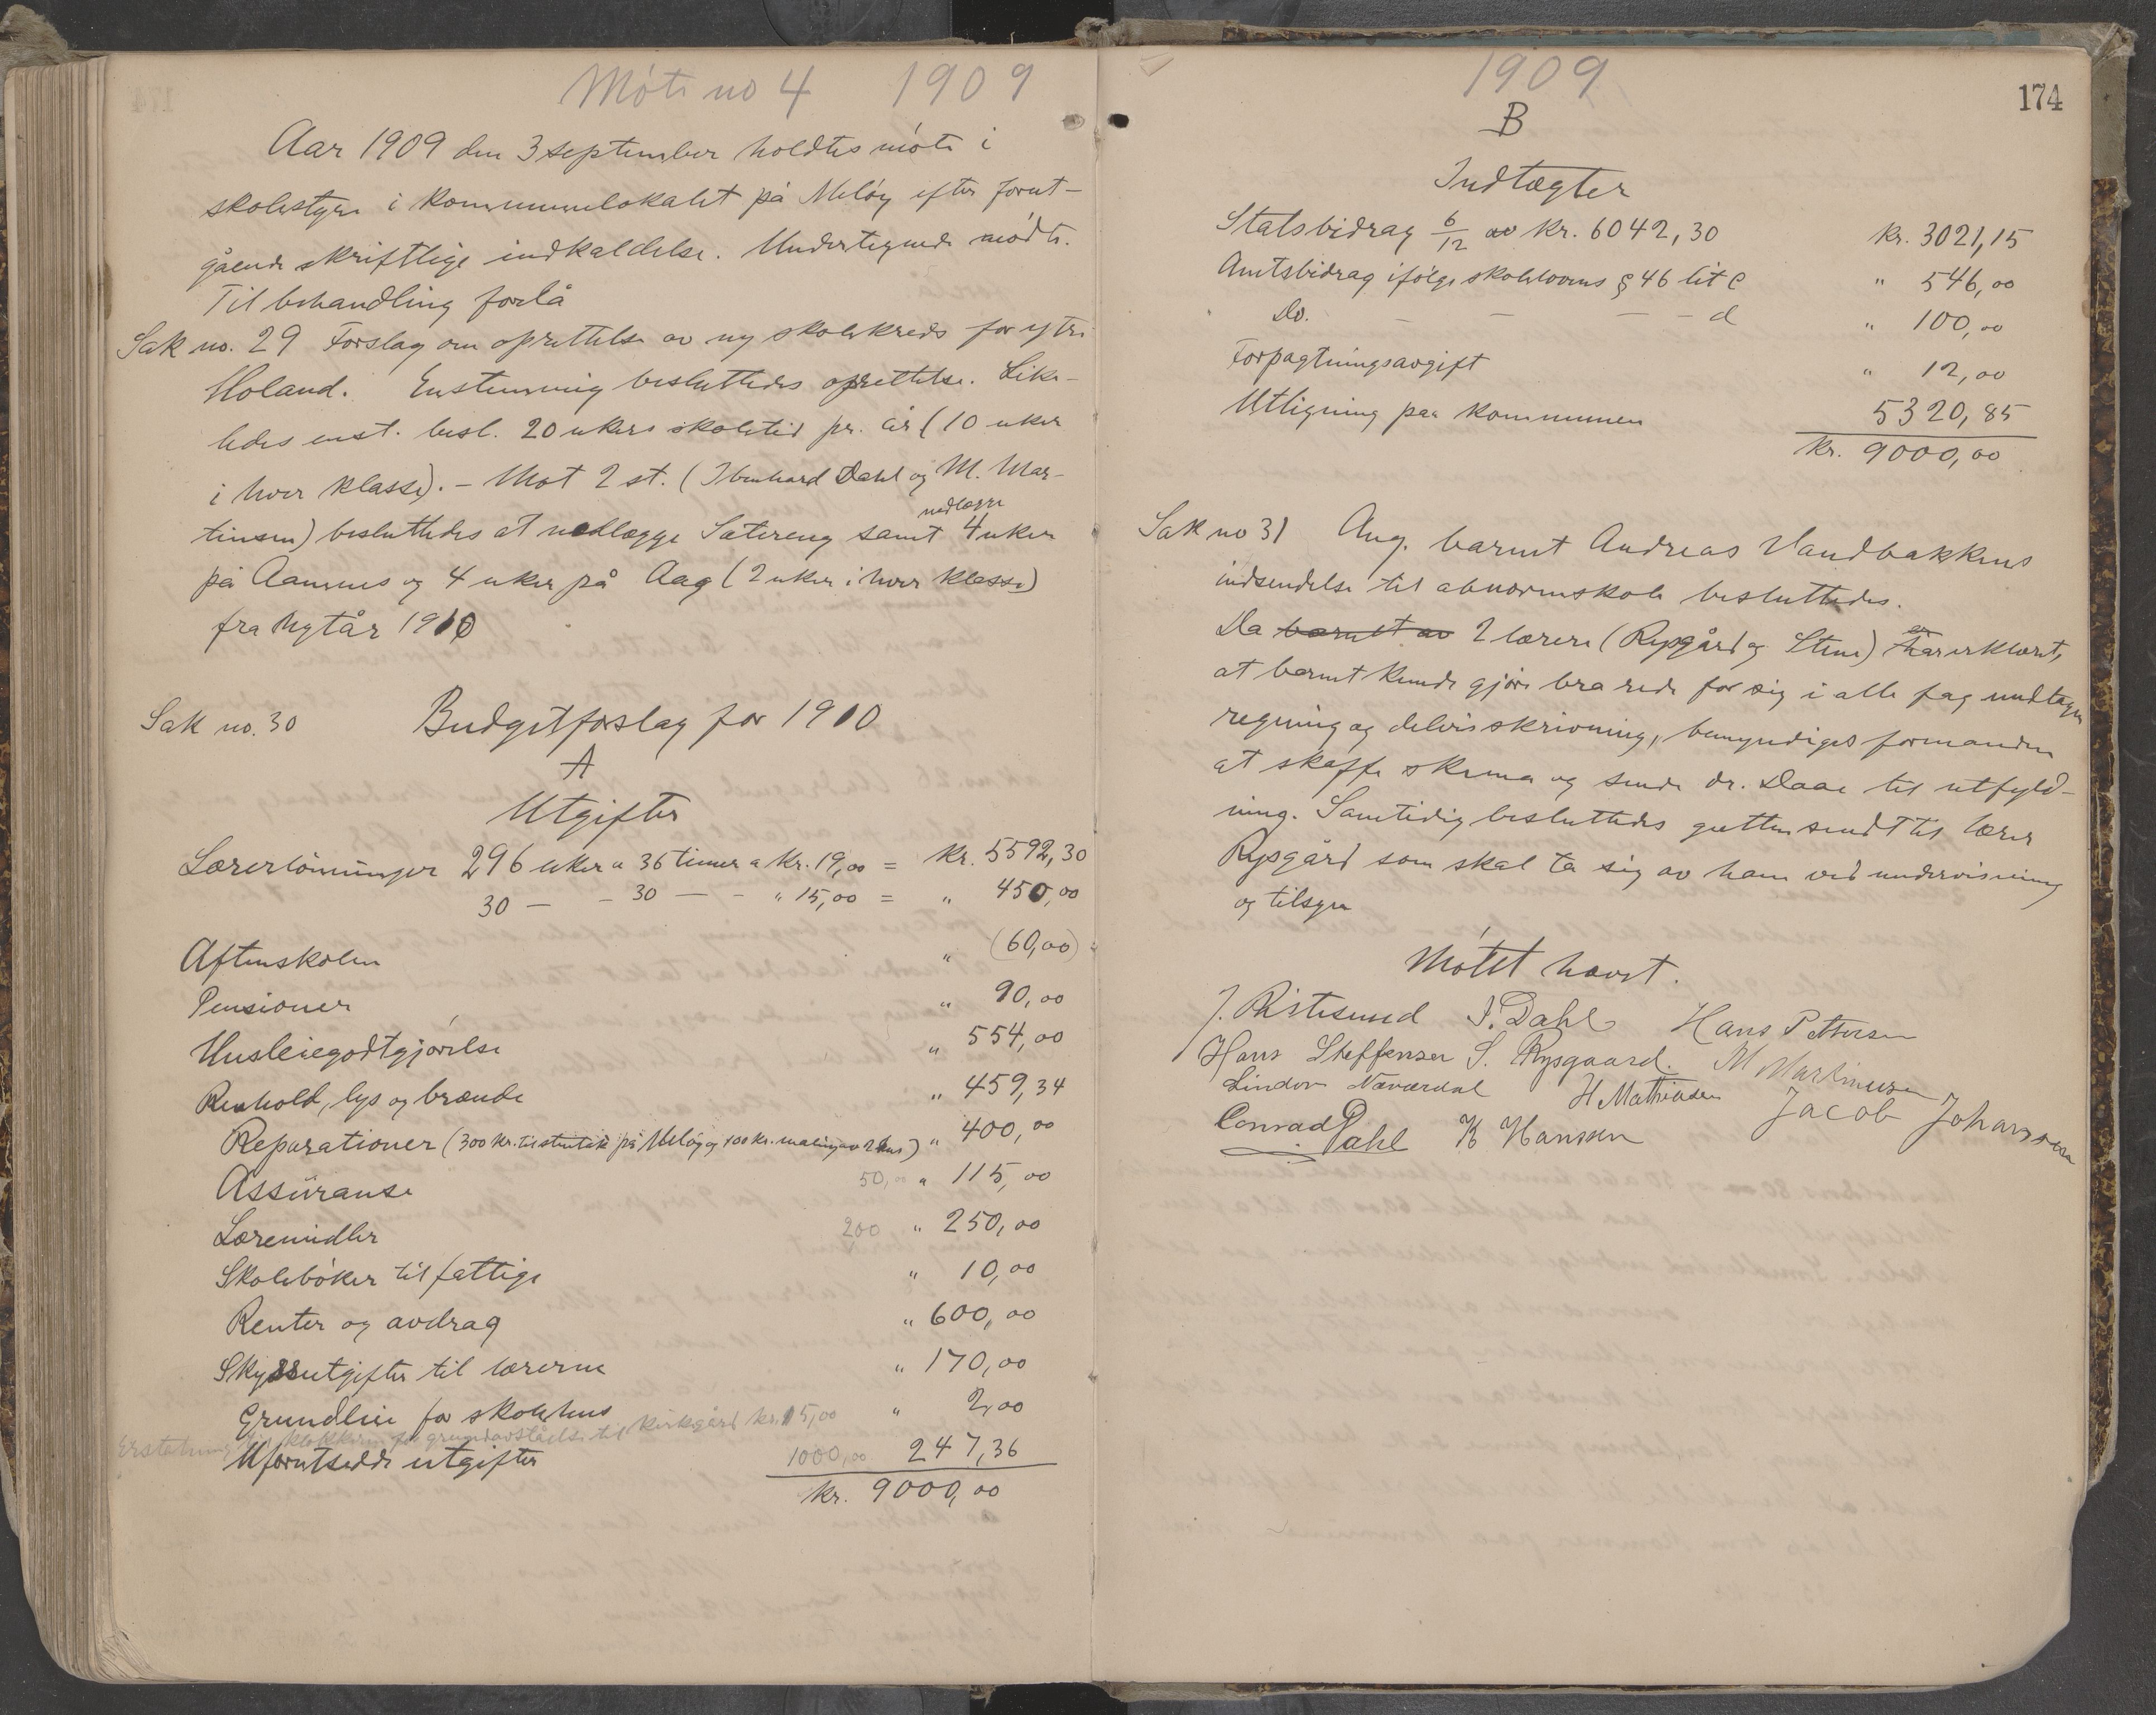 Møte no 4 1909
Aar 1909 den 3 september holdtes møte i
skolestyre i kommunelokalet på Meløy efter forut-
gående skriftlige indkaldelse. Undertegnede mødte.
Til behandling forlå
Sak no. 29 Forslag om oprettelse av ny skolekreds for ytre
Holand. Enstemmig besluttedes oprettelse. Like-
ledes enst. besl. 20 ukers skoletid pr. år (10 uker
i hver klasse). - Mot 2 st. (Ibenhard Dahl og M. Mar-
nedlægge
tinsen) besluttedes at nedlægge Sætereng samt 4 uker
på Aamnes og 4 uker på Aag (2 uker i hver klasse)
fra Nytår 1910
Sak no. 30 Budgetforslag for 1910
A
Utgifter
Lærerlønninger 296 uker a 36 timer a kr. 19,00 = kr. 5592,30
30 — - 30 — - " 15,00 = " 450,00
Aftenskolen " (60,00)
Pensioner " 90,00
Husleiegodtgjørelse " 554,00
Renhold, lys og brænde " 459,34
Reparationer (300 kr. til stutike på Meløy og 100 kr. maling av 2 hus) " 400,00
Assuranse 50,00 " 115,00
Læremidler 200 " 250,00
Skolebøker til fattige " 10,00
Renter og avdrag " 600,00
Skyssutgifter til lærerne " 170,00
Grundleie for skolehus " 2,00
Erstatning til klokkeren for grundavståelse til kirkegård kr. 15,00
Uforutsedde utgifter 1000,00 247,36
kr. 9000,00
1909
174
B
Indtægter
Statsbidrag 6/12 av kr. 6042,30 kr. 3021,15
Amtsbidrag ifølge skolelovens § 46 lit c " 546,00
Do. — — — - d " 100,00
Forpagtningsavgift " 12,00
Utligning paa kommunen 5320,85
kr. 9000,00
Sak no 31 Ang. barnet Andreas Vandbakkens
indsendelse til abnormskole besluttedes.
Da barnet av 2 lærere (Rysgård og Stene) er har erklæret,
at barnet kunde gjøre bra rede for sig i alle fag undtagen
regning og delvis skrivning, bemyndiges formanden
at skaffe skema og sende dr. Daae til utfyld-
ning. Samtidig besluttedes gutten sendt til lærer
Rysgård som skal ta sig av ham ved undervisning
og tilsyn
Møtet hævet.
J. Ristesund I. Dahl Hans Pettersen
Hans Steffensen S. Rysgaard. M Martinusen
Lindor Næverdal H Mathiasen Jacob Johansen
Conrad Dahl K Hanssen